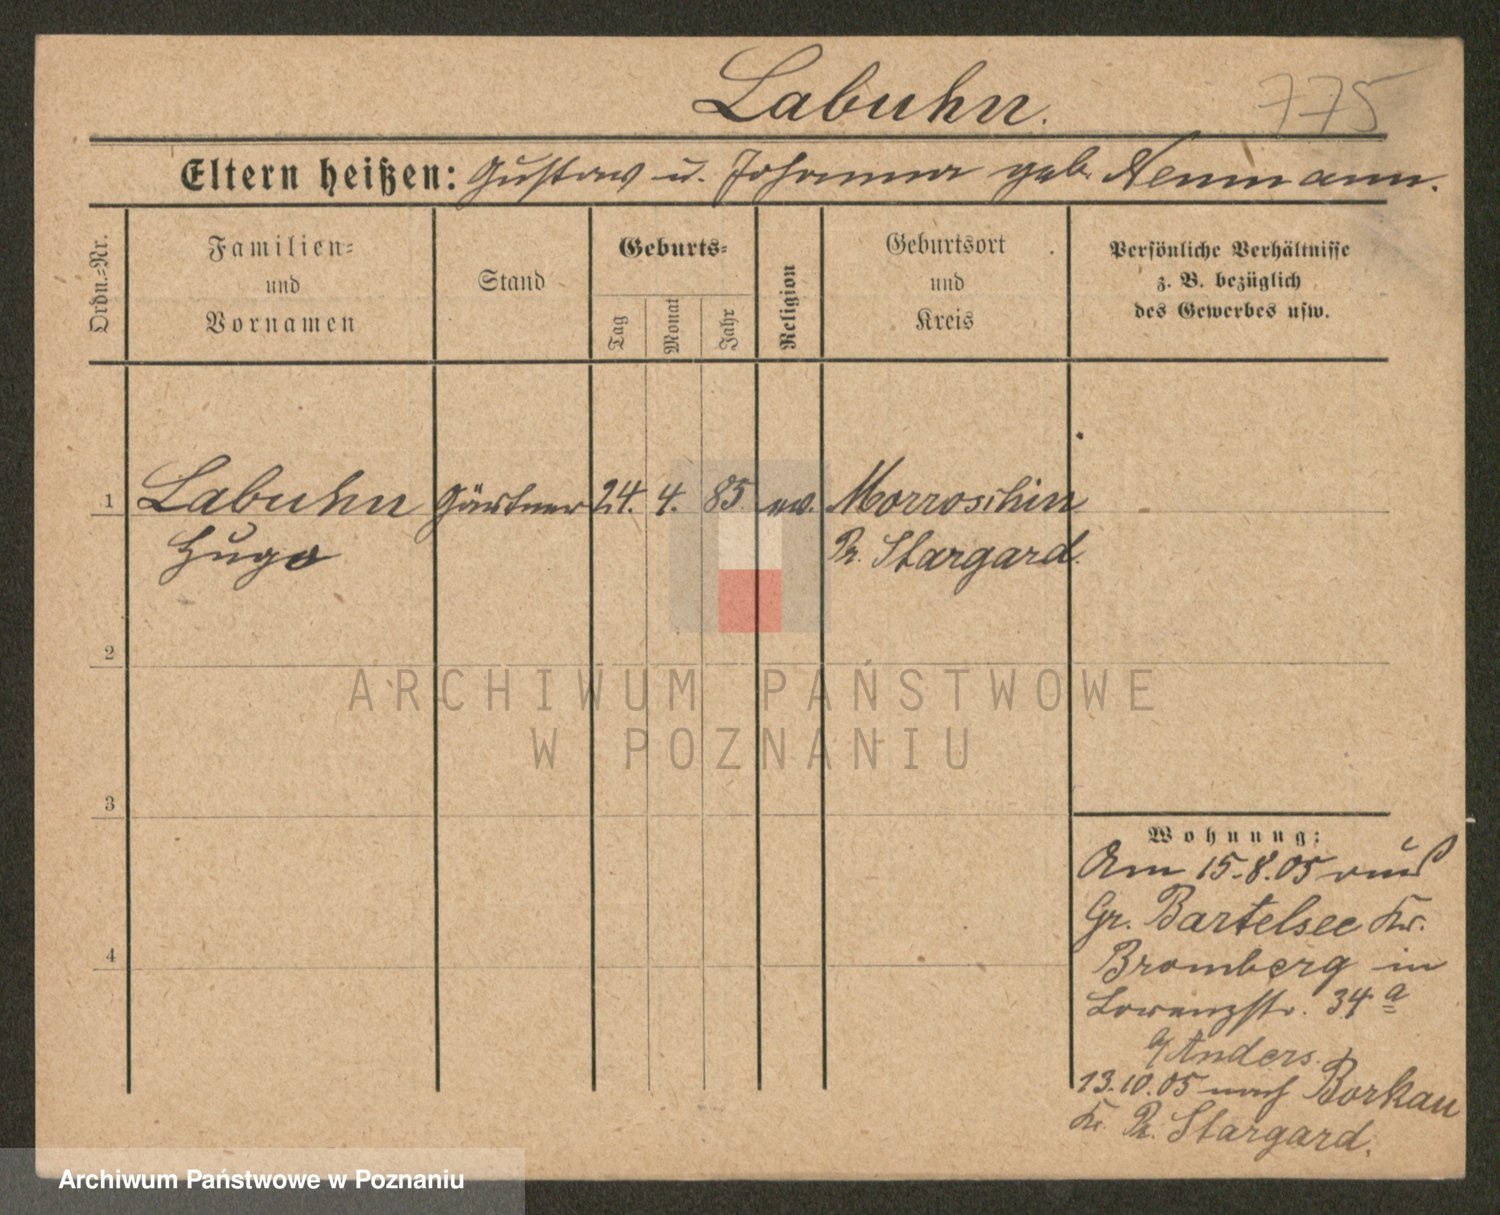 Labuhn.
775
Eltern heißen: Gustav u. Johanna geb. Neumann.
Ordn.=Nr.
Familien=
und
Vornamen
Stand
Geburts=
Tag
Monat
Jahr
Religion
Geburtsort
und
Kreis
Persönliche Verhältnisse
z. B. bezüglich
des Gewerbes usw.
1 Labuhn Gärtner 24. 4. 85 ev. Morroschin
Hugo Pr. Stargard.
2
3
4
ARCHIWUM PAŃSTWOWE
W POZNANIU
Wohnung:
Am 15.8.05 aus
Gr. Bartelsee Kr.
Bromberg in
Lorenzstr. 34 a
b/ Anders.
13.10.05 nach Borkau
Kr. Pr. Stargard.
Archiwum Państwowe w Poznaniu